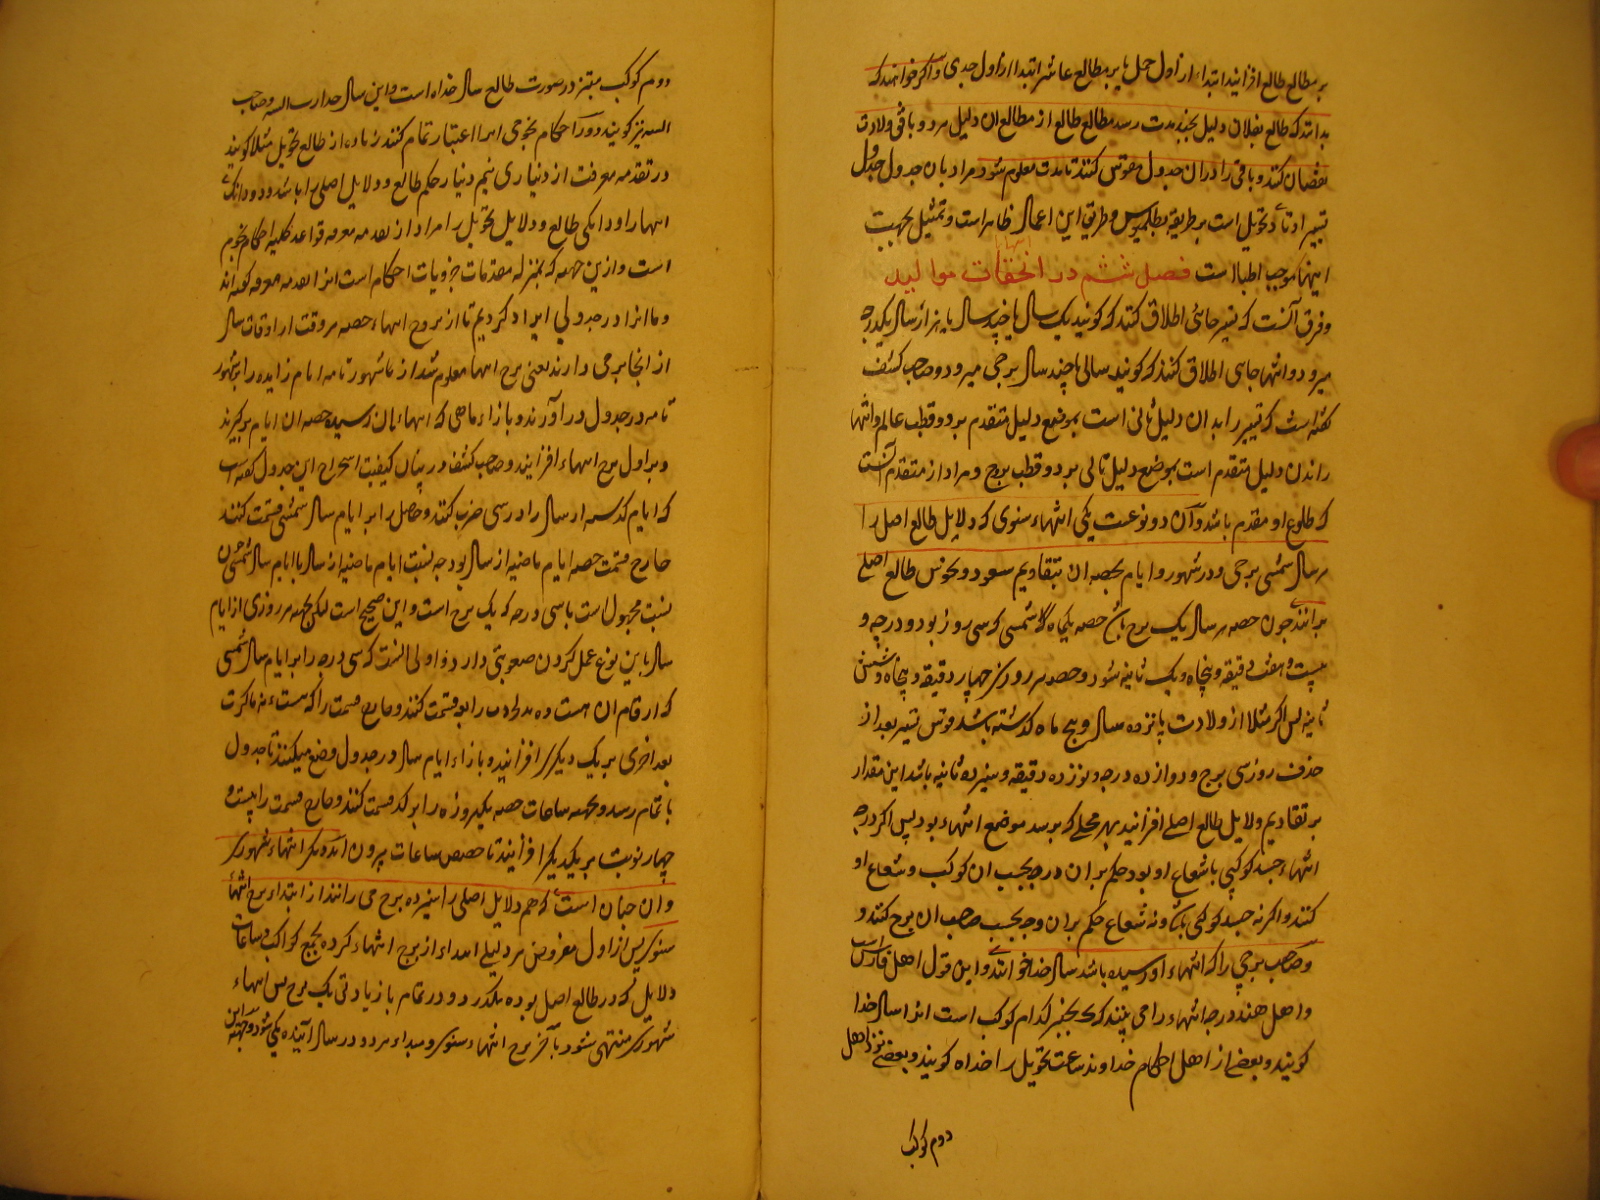 بر مطالع طالع افزایند ابتداء از اول حمل یا بر مطالع عاشر ابتدا از اول جدی و اگر خواهند که
بدانند که طالع بفلان دلیل بچند مدت رسد مطالع طالع از مطالع ان دلیل برد و باقی ولادت
نقصان کنند و باقی را در ان جدول مقوس کنند تا مدت معلوم شود و مراد بان جدول جدول
تسییرات تحویل است بر طریقه بطلمیوس و طریق این اعمال ظاهر است و تمثیل بجهت
اینها موجب اطناب است فصل ششم در انتهاات موالید
و فرق آنست که تسییر جائی اطلاق کنند که گویند یک سال یا چند سال یا بیز از سال یکدرجه
میرود و انتها جایی اطلاق کنند که گویند سالی یا چند سال برجی میرود و صاحب کشف
گفته است که تسییر راندن دلیل ثانی است بموضع دلیل متقدم بر دو قطب عالم و انتها
راندن دلیل متقدم است بموضع دلیل تالی بر دو قطب بروج و مراد از متقدم آنست
که طلوع او مقدم باشد و آن دو نوعست یکی انتهاء سنوی که دلایل طالع اصل را
هر سال شمسی برجی و در شهور و ایام بحصه ان بتقادیم سعود و نحوس طالع اصلی
برانند چون حصه هر سال یک برج باشد حصه یکماه شمسی که سی روز بود دو درجه و
بیست و هفت دقیقه و پنجاه و یک ثانیه شود و حصه هر روزی چهار دقیقه و پنجاه و شش
ثانیه پس اگر مثلا از ولادت پانزده سال و پنج ماه گذشته باشد قوس تسییر بعد از
حذف روز سی برج و دوازده درجه و نوزده دقیقه و سیزده ثانیه باشد این مقدار
بر تقادیم دلایل طالع اصلی افزایند بهر محلی که برسد موضع انتهاء بود پس اگر درجه
انتهاء جسد کوکبی یا شعاع او بود حکم بر ان درجه بحسب ان کوکب و شعاع او
کنند و اگر نه جسد کوکبی باشد و نه شعاع حکم بر ان وجه بحسب صاحب ان برج کنند و
و صاحب برجی را که انتهاء او رسیده باشد سال خدا خوانند و این قول اهل فارس
و اهل هند درجه انتهاء را می بینند که در بهر کدام کوکب است انرا سال خدا
گویند و بعضی از اهل احکام خداوند ساعت تحویل را خداه گویند و بعضی نزد اهل
دوم کوکب
دوم کوکب مبتز در صورت طالع سال خداه است و این سال خدا رب السنه و صاحب
السنه نیز گویند و در احکام نجومی او را اعتبار تمام کنند زیاده از طالع تحویل مثلا گویند
در تقدمه معرفت از دنیاری نیم دنیار حکم طالع و دلایل اصلی را باشد و دو دانگ
انتها را و دانگی طالع و دلایل تحویل را مراد از تقدمه معرفه قواعد کلیه احکام نجوم
است و ازین جهت که بمنزله مقدمات جزویات احکام است انرا تقدمه معرفه گفته اند
و ما انرا در جدولی ایراد کردیم تا از بروج انتهاء حصه هر وقت از اوقات سال
از انجا بر می دارند یعنی برج انتها معلوم شد از ما شهور تامه ایام زایده را بشهور
تامه در جدول در آورند و بازاء ماهی که انتهاء بان رسیده حصه ان ایام برگیرند
و بر اول برج انتهاء افزایند و صاحب کشف در بیان کیفیت استخراج این جدول گفته است
که ایام گذشته از سال را در سی ضرب کنند و حاصل را بر ایام سال شمسی قسمت کنند
خارج قسمت حصه ایام ماضیه از سال بود چه نسبت ایام ماضیه از سال با ایام سال شمسی چون
نسبت مجهول است با سی درجه که یک برج است و این صحیح است لیکن بجهه هر روزی از ایام
سال باین نوع عمل کردن صعوبتی دارد و اولی انست که سی درجه را بر ایام سال شمسی
بعد اخری بر یک دیگر افزایند و بازاء ایام سال در جدول وضع میکنند تا جدول
با تمام رسد و بجهه ساعات حصه یکروزه را بر کد قسمت کنند و خارج قسمت را بیست و
چهار نوبت بر یکدیگر افزایند تا حصص ساعات بیرون اید و دیگر انتهاء شهوری
و ان چنان است که هم دلایل اصلی را سیزده برج می رانند از ابتداء برج انتهاء
سنوی پس از اول مفروض هر دلیلی ابتداء از برج انتهاء کرده بجمیع کواکب و ساعات
دلایل که در طالع اصل بوده بگذرد و در تمام با زیادتی یک برج پس انتهاء
شهوری منتهی شود باخر برج انتهاء سنوی و مبداء هر دو در سال آینده یکی شود و بجهه این